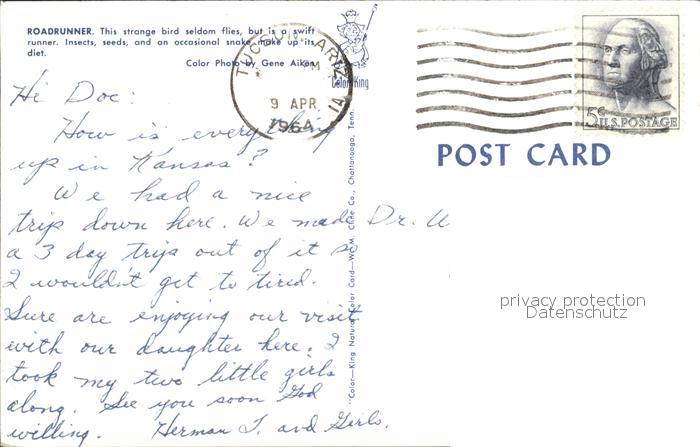 ROADRUNNER. This strange bird seldom flies, but is a swift
runner. Insects, seeds, and an occasional snake make up its
diet.
Color Photo by Gene Aiken
Color King
TUCSON, ARIZ
PM
9 APR
1964
5¢ U.S. POSTAGE
POST CARD
Hi Doc:
How is everything
up in Kansas?
We had a nice
trip down here. We made
a 3 day trip out of it so
I wouldn't get to tired.
Sure are enjoying our visit
with our daughter here. I
took my two little girls
along. See you soon God
willing. Herman T. and Girls.
Dr. U
"Color-King Natural Color Card—W. M. Cline Co., Chattanooga, Tenn.
privacy protection
Datenschutz